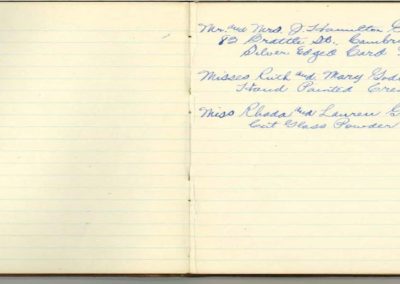 Mr. and Mrs. J. Hamilton
82 Brattle St. Cambri
Silver Edged Card
Misses Ruth and Mary God
Hand Painted Cre
Miss Rhoda and Lauren G
Cut Glass Powder